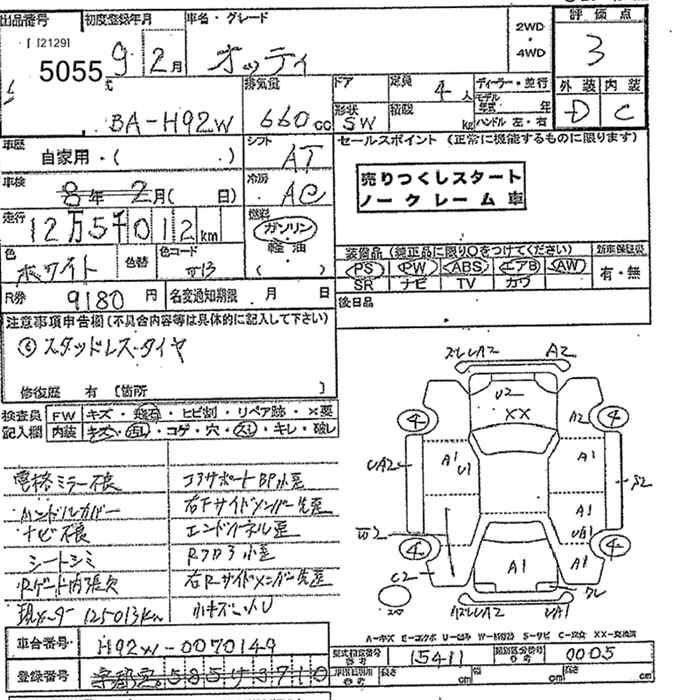 出品番号 初度登録年月 車名・グレード 2WD・4WD 評価点
5055 9 2月 オッティ 3
排気量 ドア 定員 4人 ディーラー・並行 外装 内装
BA-H92W 660cc 形状 SW 積載 kg モデル年式 年 ハンドル 左・右 D C
車歴 自家用・( ・) シフト AT セールスポイント (正常に機能するものに限ります)
車検 8年2月( 日) 冷房 AC
売りつくしスタート
ノークレーム車
走行 12万5千012km 燃料 ガソリン 軽油 ( )
色 ホワイト 色替 色コード
装備品 (純正品に限り○をつけてください) 新車保証書
PS PW ABS エアB AW 有・無
SR ナビ TV カワ
R券 9180円 名変通知期限 月 日 後日品
注意事項申告欄 (不具合内容等は具体的に記入して下さい)
スタッドレスタイヤ
修復歴 有 〔箇所 〕
検査員 FW キズ・飛石・ヒビ割・リペア跡・×要
記入欄 内装 キズ・汚レ・コゲ・穴・スレ・キレ・破レ
電格ミラー不良 コアサポートBP小歪
ハンドルカバー 右Fサイドメンバー先歪
ナビ不良 エンドパネル歪
シートシミ Rフロア小歪
Rゲート内張欠 右Rサイドメンバー先歪
現メーター125013Km 小キズ凹U
A2
U2
XX
4 A2 4
A1 U1 A1
UA2 S2
W2 A1 UA1
4 4
C2 A1 A1
UA1
A=キズ E=エクボ U=凹み W=補修跡 S=サビ C=腐食 XX=交換済
車台番号 H92W-0070149 型式指定番号 参考 15411 類別区分番号 参考 0005
登録番号 宇都宮 585 3710 長さ cm 幅 cm 高さ cm